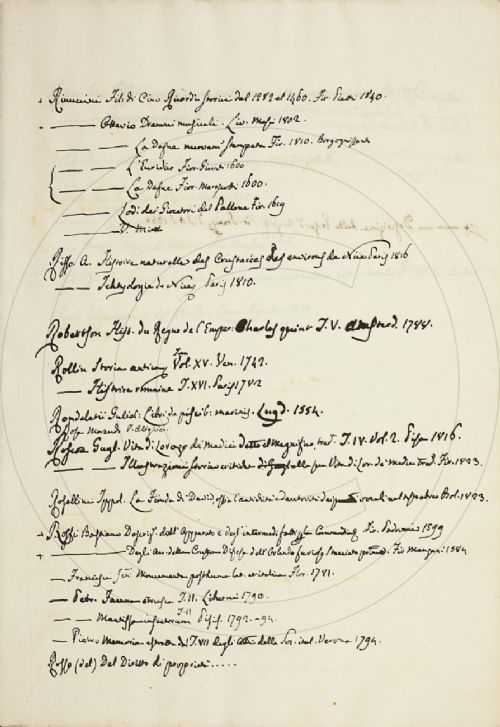 + Rinuccini Fil. di Cino Ricordi storici dal 1282 al 1460. Fir. Piatti 1840.
+ —— Ottavio Drammi musicali. Liv. Masi 1802.
—— —— La Dafne nuovam stampata Fir. 1810.
—— —— L'Euridice Fior. Giunti 1600
—— —— La Dafne Fior. Marescotti 1600.
—— —— Lodi dei Giocatori del Pallone Fir. 1619
—— —— V.
Risso A. Histoire naturelle des Crustacées des environs de Nice Paris 1816
—— Ichtyologie de Nice, Paris 1810.
Robertson Hist. du Regne de l'Emper: Charles quint T. V. Amsterd. 1788.
Rollin Storia antica, Vol. XV. Ven. 1742.
—— Histoire romaine T. XVI. Paris 1782
Rondeletii Gulielmi: Libri de piscib: marinis. Lugd. 1554.
Roscoe Gugl. Vita di Lorenzo de Medici detto il Magnifico trad. T. IV. Vol. 2. Pisa 1816.
—— —— Illustrazioni storico critiche di alla sua Vita di Lor. de Medici Trad. Fir. 1823.
Rosellini Ippol. La Fionda di David, ossia l'antichità ed autorità dei Bol. 1823.
+ Rossi Bastiano Descriz. dell' Apparato e degl' intermedi fatti p. la Commedia Fir. Padovani 1589
+ —— Degli Acc. della Crusca Difesa dell' Orlando furioso Fir. Manzani 1584
—— Francisci Monumenta Fir. 1781.
—— Petri Fauna etrusca T. II. Liburni 1790.
—— —— Mantissa insectorum T. II Pisis. 1792-94.
—— Pietro Memoria T. VII degli Atti della Soc. ital. Verona 1794.
Rosso (del) Del Diritto di proprietà.....